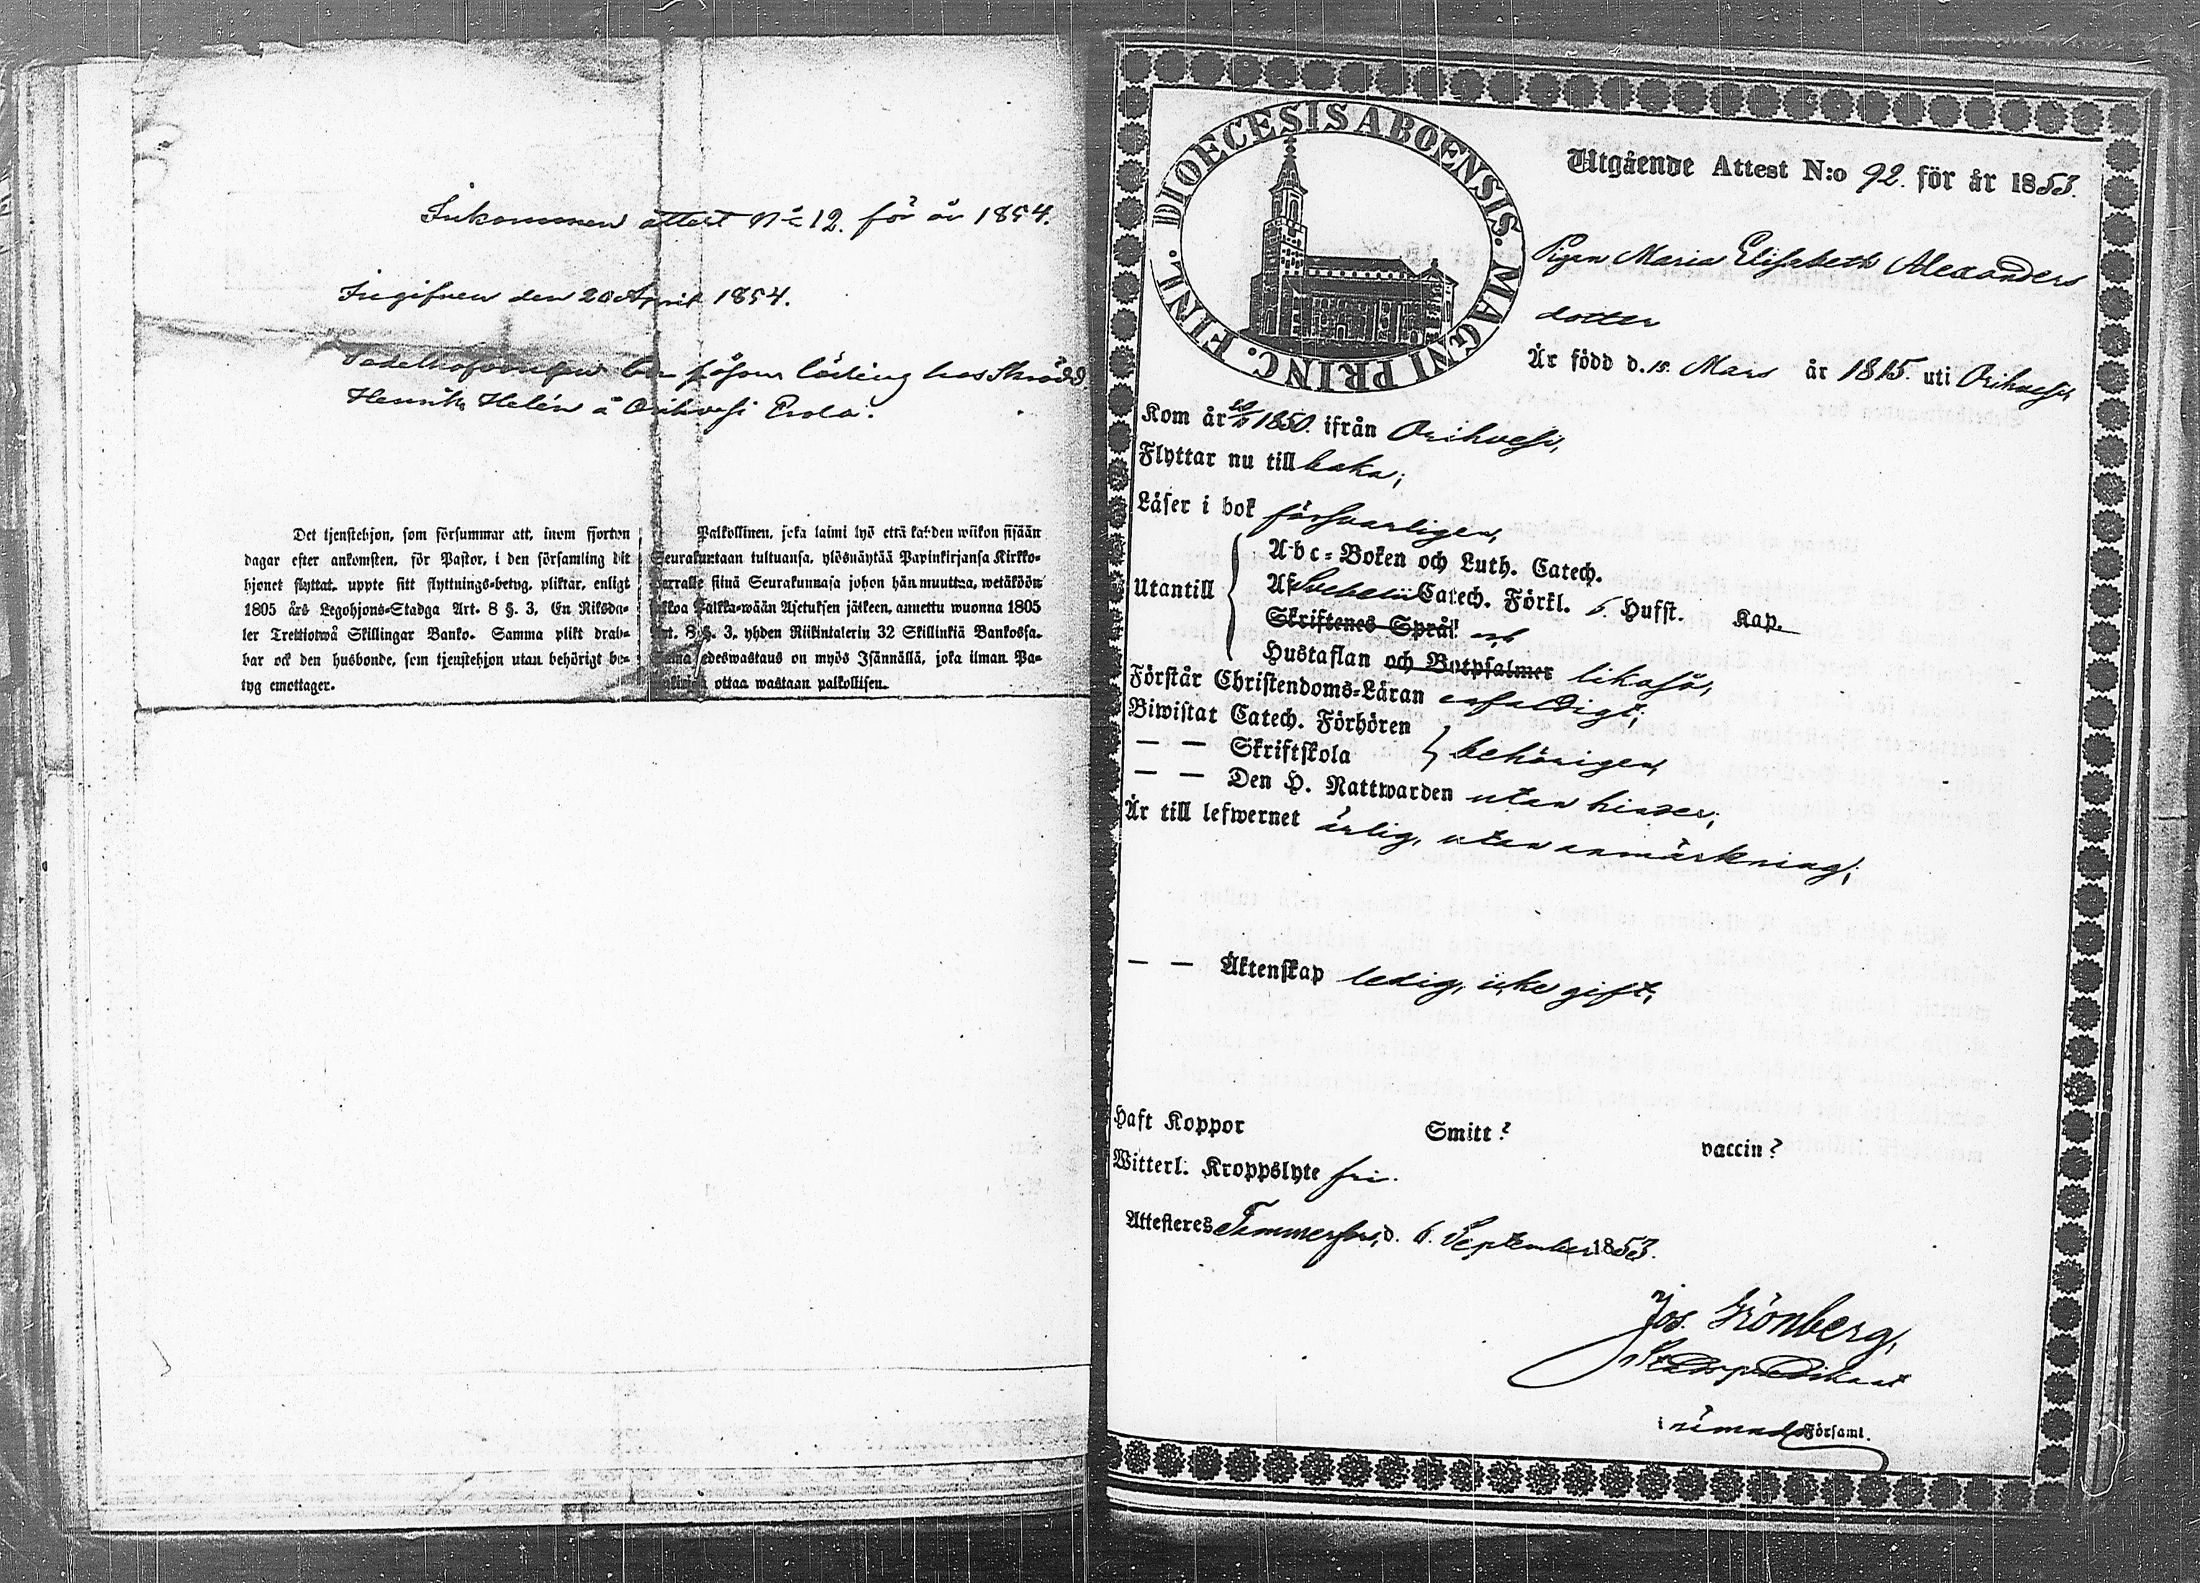 Inkommen attest N:o 12. för år 1854.
Ingifven den 20 April 1854.
bor såsom lösing hos Skrädd
Henrik Helén å Orihvesi Erola.
Det tjenstehjon, som försummar att, inom fjorton
dagar efter ankomsten, för Pastor, i den församling dit
hjonet flyttat, uppte sitt flyttnings-betyg, pliktar, enligt
1805 års Legohjons-Stadga Art. 8 §. 3, En Riksda-
ler Trettiotwå Skillingar Banko. Samma plikt drab-
bar ock den husbonde, som tjenstehjon utan behörigt be-
tyg emottager.
Palkollinen, joka laimi lyö että kahden wiikon sisään
Seurakuntaan tultuansa, ylösnäytää Papinkirjansa Kirkko-
herralle siinä Seurakunnasa johon hän muuttaa, wetäköön
sakkoa Palkka-wään Asetuksen jälkeen, annettu wuonna 1805
Art. 8 §. 3, yhden Riikintalerin 32 Skillinkiä Bankossa.
Sama edeswastaus on myös Isännällä, joka ilman Pa-
pinkirjaa ottaa wastaan palkollisen.
DIOECESIS ABOENSIS. MAGNI PRINC. FINL.
Utgående Attest N:o 92. för år 1853.
Pigan Maria Elisabeth Alexanders
dotter
Är född d. 15. Mars år 1815. uti Orihvesi,
Kom år 1850. ifrån Orihvesi,
Flyttar nu till baka;
Läser i bok försvarligen,
Utantill
A-b-c-Boken och Luth. Catech.
Af Svebelii Catech. Förkl. 6. Hufst. Kap.
Skriftenes Språk och
Hustaflan och Botpsalmer likaså,
Förstår Christendoms-Läran enfaldigt;
Biwistat Catech. Förhören
— — Skriftskola behörigen,
— — Den H. Nattwarden utan hinder;
Är till lefwernet ärlig, utan anmärkning;
— — Äktenskap ledig, icke gift,
Haft Koppor Smitt? vaccin?
Witterl. Kroppslyte fri.
Attesteres Tammerfors, d. 6. September 1853.
Jos. Grönberg,
i nämnda Församl.